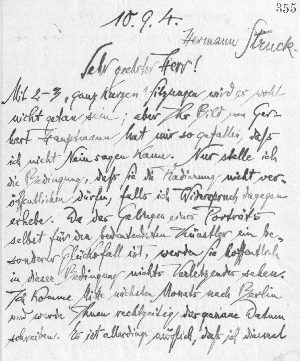 355
10.9.4.
Hermann Struck.
Sehr geehrter Herr!
Mit 2-3 „ganz kurzen" Sitzungen wird es wohl
nicht getan sein; aber Ihr Bild von Ger-
hart Hauptmann hat mir so gefallen, daß
ich nicht Nein sagen kann. Nur stelle ich
die Bedingung, daß Sie die Radierung nicht ver-
öffentlichen dürfen, falls ich Widerspruch dagegen
erhebe. Da das Gelingen eines Portraits
selbst für den bedeutendsten Künstler ein be-
sonderer Glücksfall ist, werden Sie hoffentlich
in dieser Bedingung nichts Verletzendes sehen.
Ich komme Mitte nächsten Monats nach Berlin
und werde Ihnen rechtzeitig das genaue Datum
schreiben. Es ist allerdings möglich, daß ich diesmal